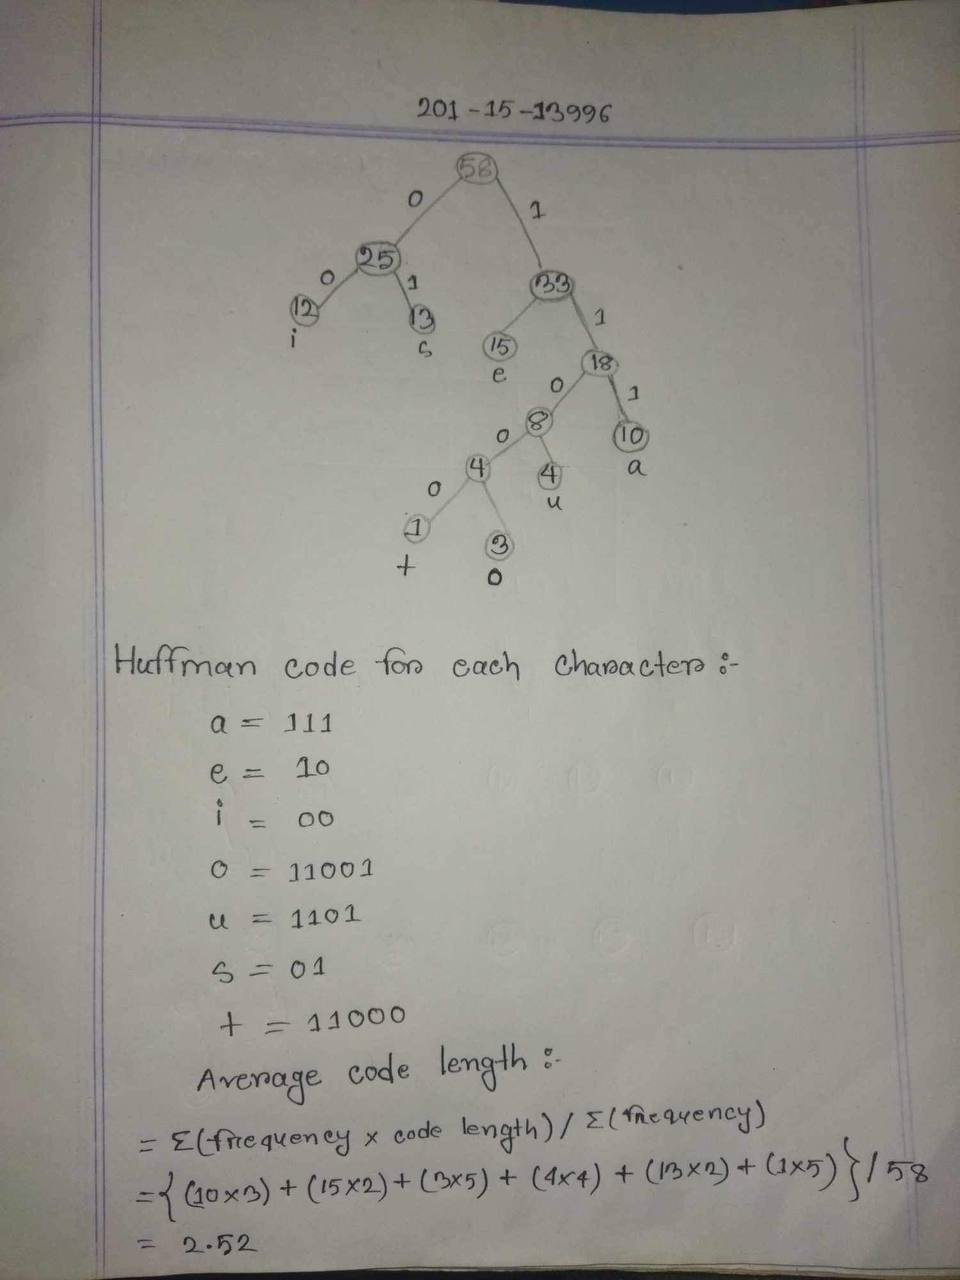 201-15-13996
58
0 1
25
0 1
33
1
12
i
13
s
15
e
18
0 1
8
0
10
a
4
0
4
u
1
t
3
o
Huffman code for each character :-
a = 111
e = 10
i = 00
o = 11001
u = 1101
s = 01
t = 11000
Average code length :-
= Σ(frequency x code length) / Σ(frequency)
= {(10x3) + (15x2) + (3x5) + (4x4) + (13x2) + (1x5)} / 58
= 2.52